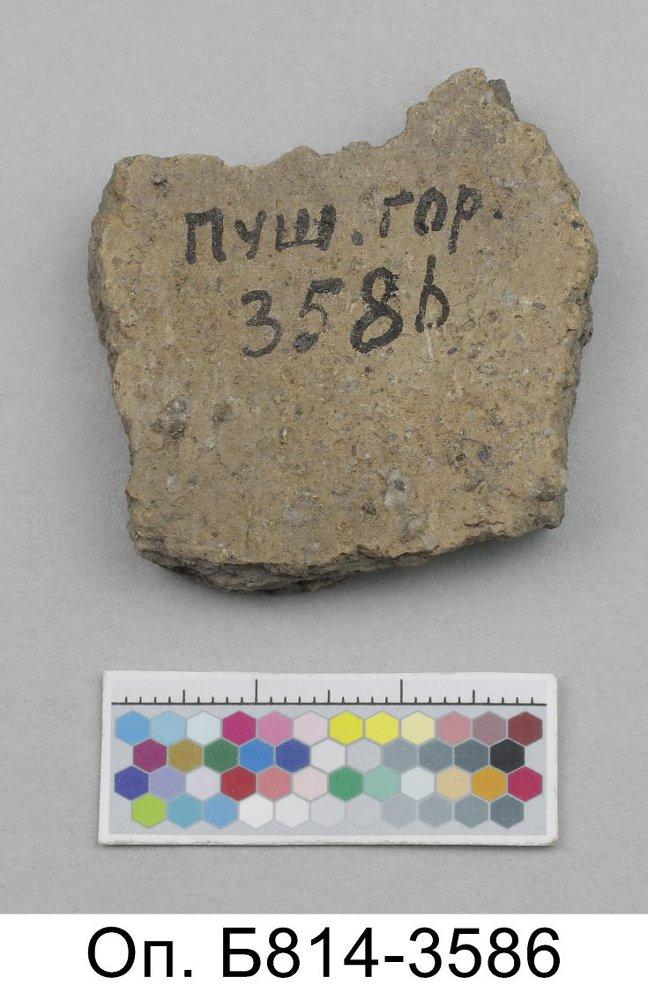 пуш. гор.
3586
Оп. Б814-3586